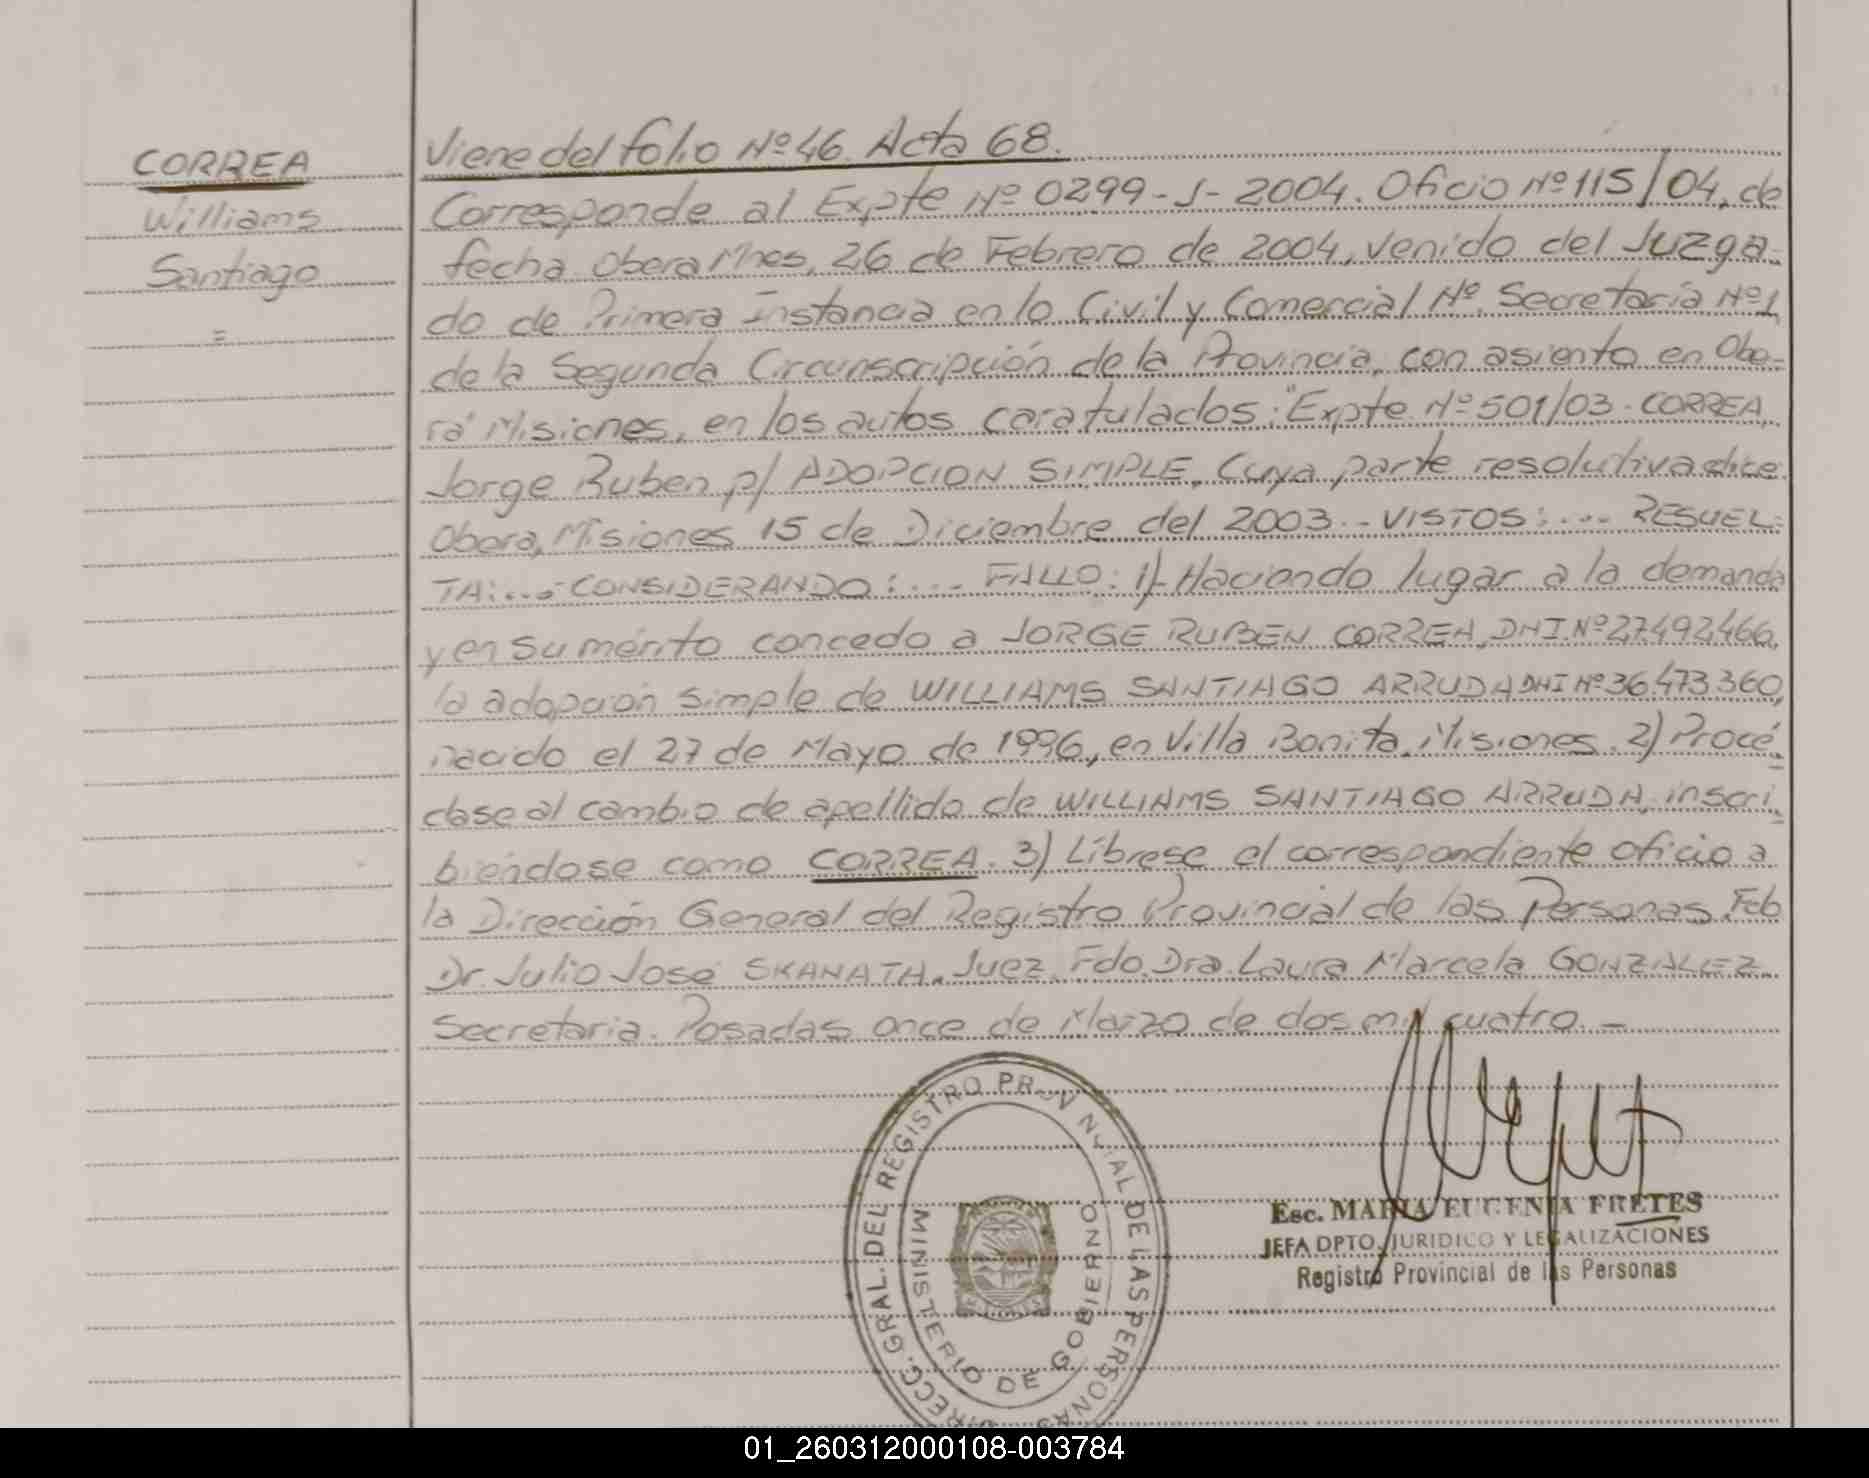 CORREA
Williams
Santiago
=
Viene del folio Nº 46. Acta 68.
Corresponde al Expte Nº 0299-J-2004. Oficio Nº 115/04, de
fecha Obera Mnes, 26 de Febrero de 2004, venido del Juzga-
do de Primera Instancia en lo Civil y Comercial Nº. Secretaría Nº 1
de la Segunda Circunscripción de la Provincia, con asiento en Obe-
rá Misiones, en los autos caratulados: "Expte. Nº 501/03. CORREA,
Jorge Ruben p/ ADOPCION SIMPLE, Cuya parte resolutiva dice
Obera, Misiones 15 de Diciembre del 2003.. VISTOS:... RESUEL-
TA:...- CONSIDERANDO:... FALLO: 1)- Haciendo lugar a la demanda
y en su mérito concedo a JORGE RUBEN CORREA, DNI. Nº 27.492.466,
la adopción simple de WILLIAMS SANTIAGO ARRUDA DNI Nº 36.473.360,
nacido el 27 de Mayo de 1996, en Villa Bonita, Misiones. 2) Procé-
dase al cambio de apellido de WILLIAMS SANTIAGO ARRUDA, inscri-
biéndose como CORREA. 3) Líbrese el correspondiente oficio a
la Dirección General del Registro Provincial de las Personas. Fdo
Dr. Julio José SKANATA. Juez. Fdo. Dra. Laura Marcela GONZALEZ
Secretaria. Posadas once de Marzo de dos mil cuatro. -
DIRECC. GRAL. DEL REGISTRO PROVINCIAL DE LAS PERSONAS
MINISTERIO DE GOBIERNO
Esc. MARIA EUGENIA FRETES
JEFA DPTO. JURIDICO Y LEGALIZACIONES
Registro Provincial de las Personas
01_260312000108-003784